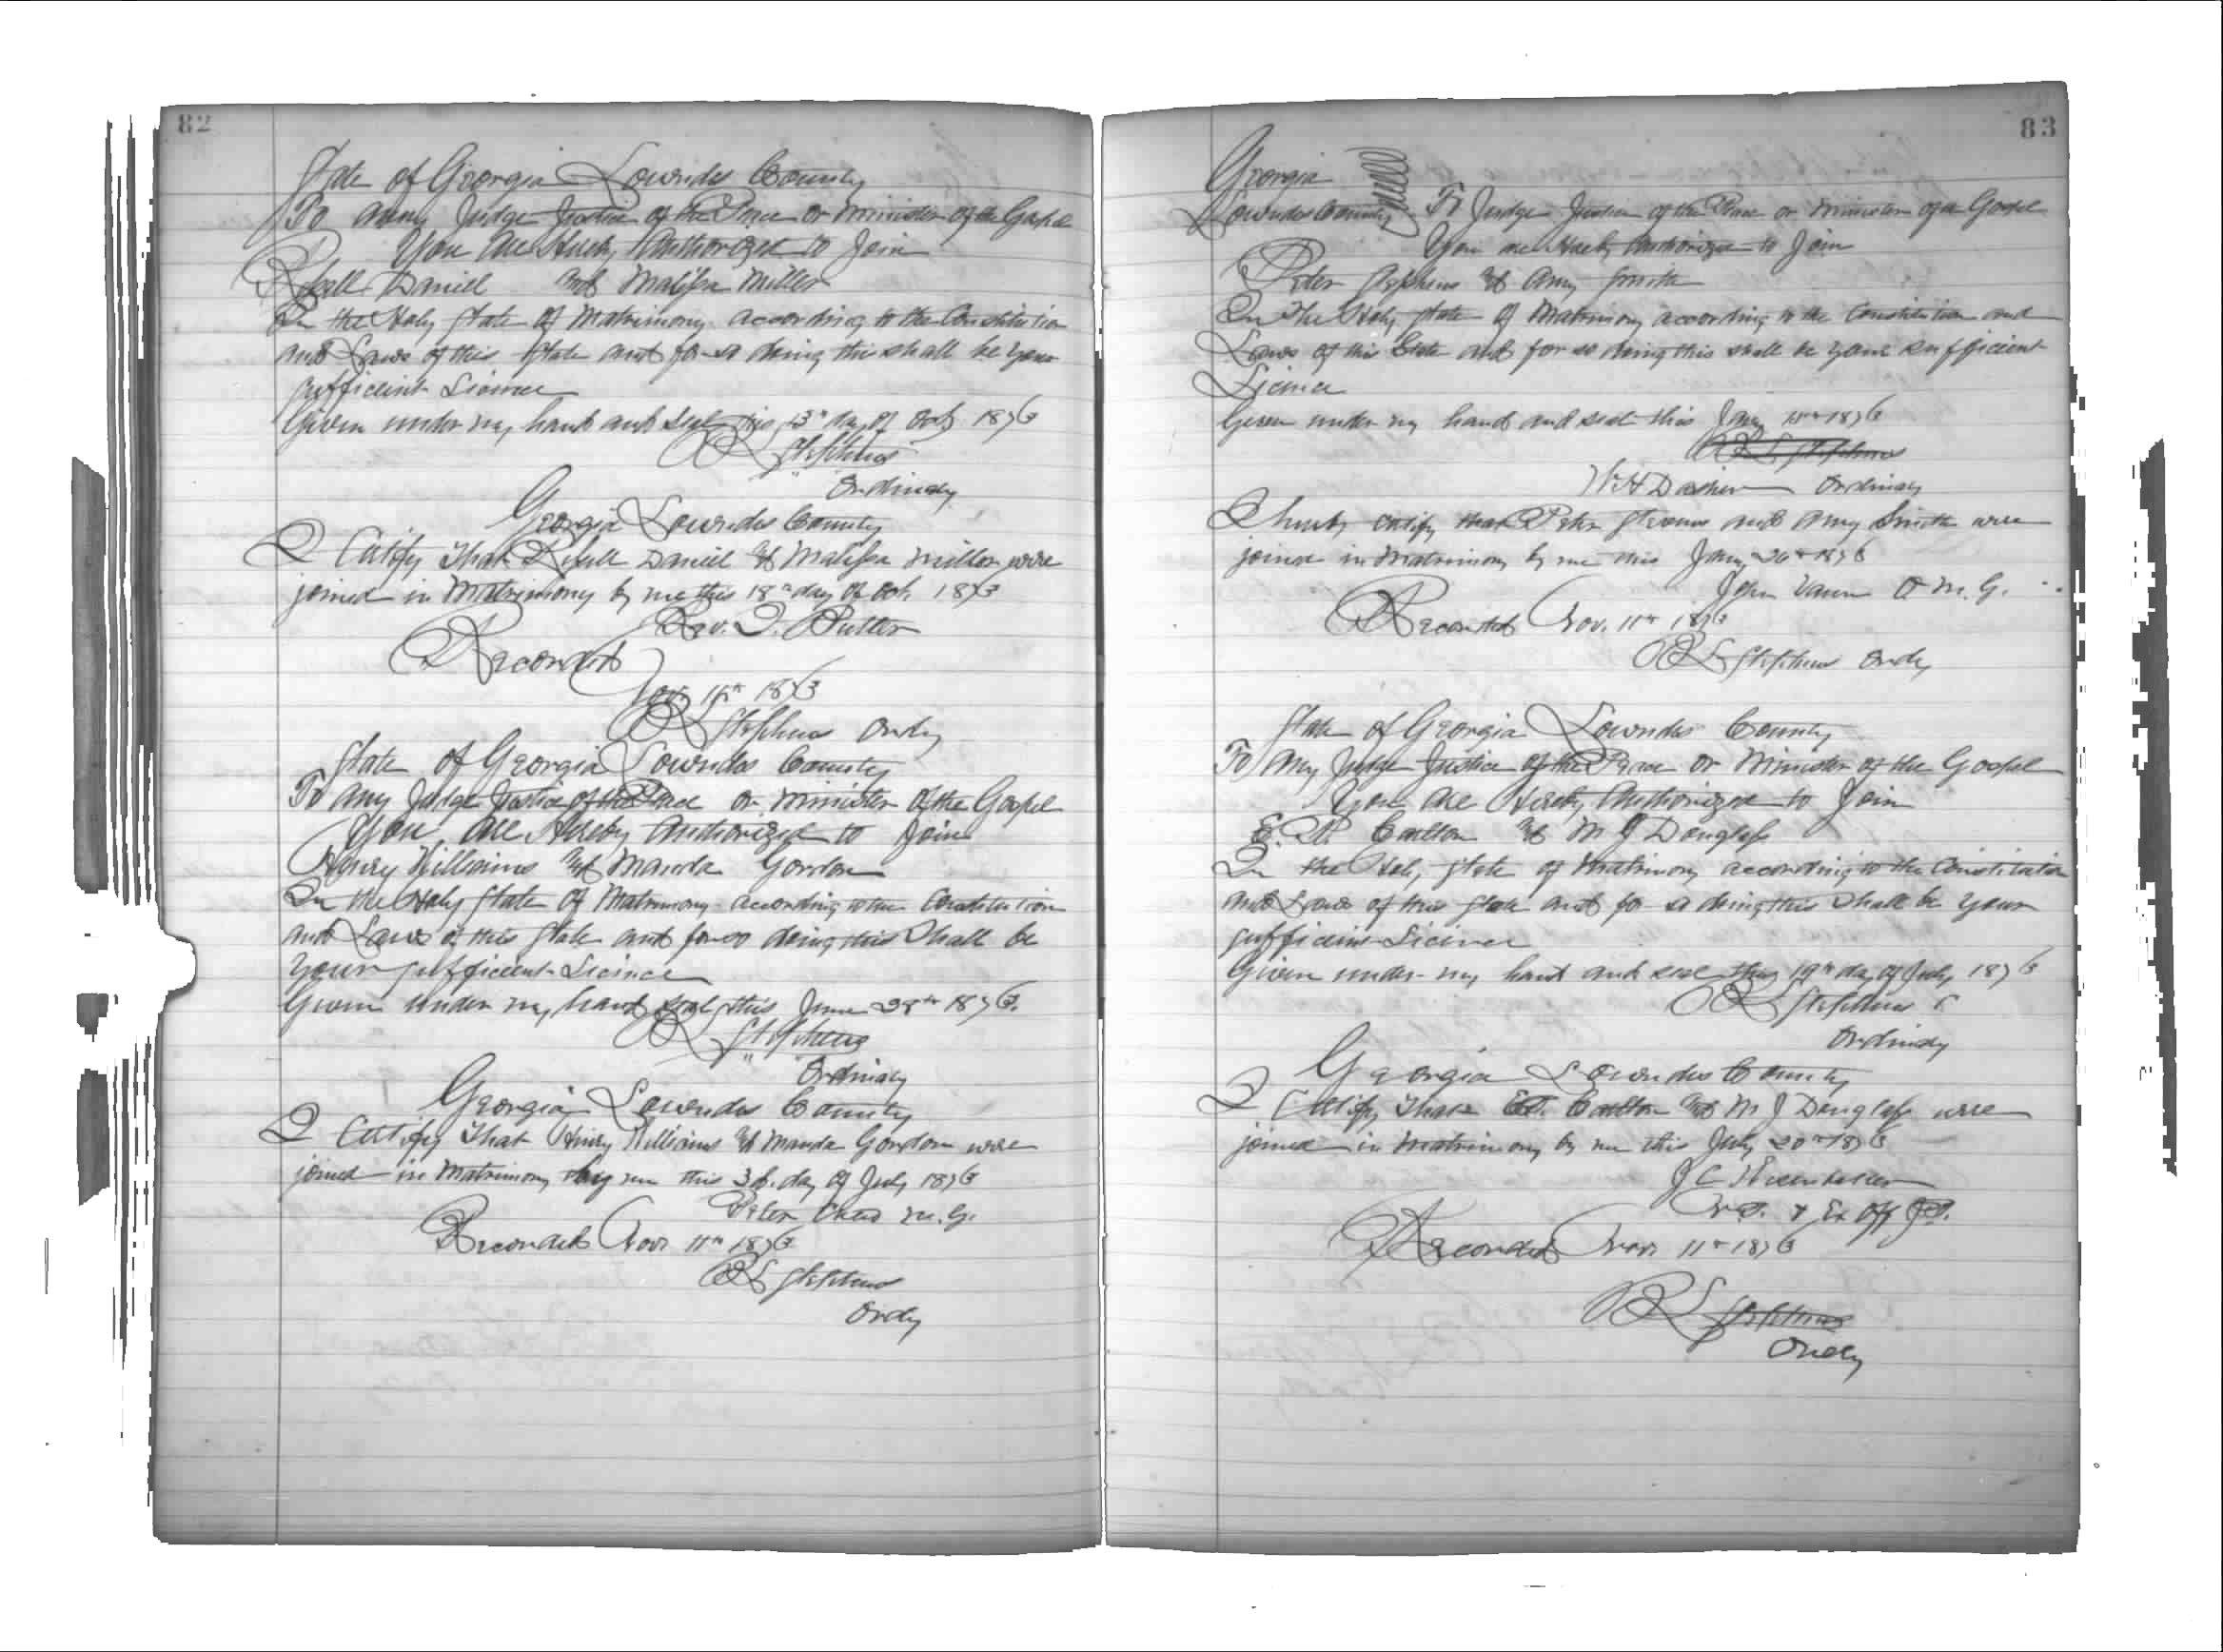 82
State of Georgia Lowndes County
To anny Judge Justice of the Peace or Minister of the Gospel
You are Hereby Authorized to Join
Daniel and Malissa Miller
In the Holy State of Matrimony according to the Constitution
and Laws of this State and for so doing this shall be your
sufficient Licince
Given under my hand and Seal this 13th day of Oct 1876
R L Stephens
Ordinary
Georgia Lowndes County
I Certify That Daniel & Malissa Miller were
joined in Matrimony by me this 18th day of Oct. 1876
Rev. I. Butler
Recorded
Nov. 11th 1876
R L Stephens Ordy
State of Georgia Lowndes County
To any Judge Justice of the Peace or Minister of the Gospel
You are Hereby Authorized to Join
Henry Williams and Manda Gordon
In the Holy State of Matrimony according to the Constitution
and Laws of this State and for so doing this Shall be
your sufficient Licince
Given under my hand seal this June 28th 1876.
R L Stephens
Ordinary
Georgia Lowndes County
I Certify That Henry Williams & Manda Gordon were
joined in Matrimony by me this 3d. day of July 1876
Peter M.G.
Recorded Nov 11th 1876
R L Stephens
Ordy
83
Georgia
Lowndes County To Judge Justice of the Peace or Minister of a Gospel
You are Hereby Authorized to Join
Peter Stephens & Amy Smith
In The Holy State of Matrimony according to the Constitution and
Laws of this State and for so doing this shall be your sufficient
Licince
Given under my hand and seal this Jany 1876
R L Stephens
W H Dasher Ordinary
I hereby certify that Peter and Amy Smith were
joined in Matrimony by me this Jany 26th 1876
John Vann O M. G.
Recorded Nov. 11th 1876
R L Stephens Ordy
State of Georgia Lowndes County
To Any Judge Justice of the Peace or Minister of the Gospel
You are Hereby Authorized to Join
E. P. Carlton & M J Douglass
In the Holy State of Matrimony according to the Constitution
and Laws of this State and for so doing this Shall be your
sufficient Licince
Given under my hand and seal this 19th day of July 1876
R L Stephens
Ordinary
Georgia Lowndes County
I Certify That Carlton and M J Douglass were
joined in Matrimony by me this July 20th 1876
J C
N.P. & Ex Off J.P.
Recorded Nov 11th 1876
R L Stephens
Ordy